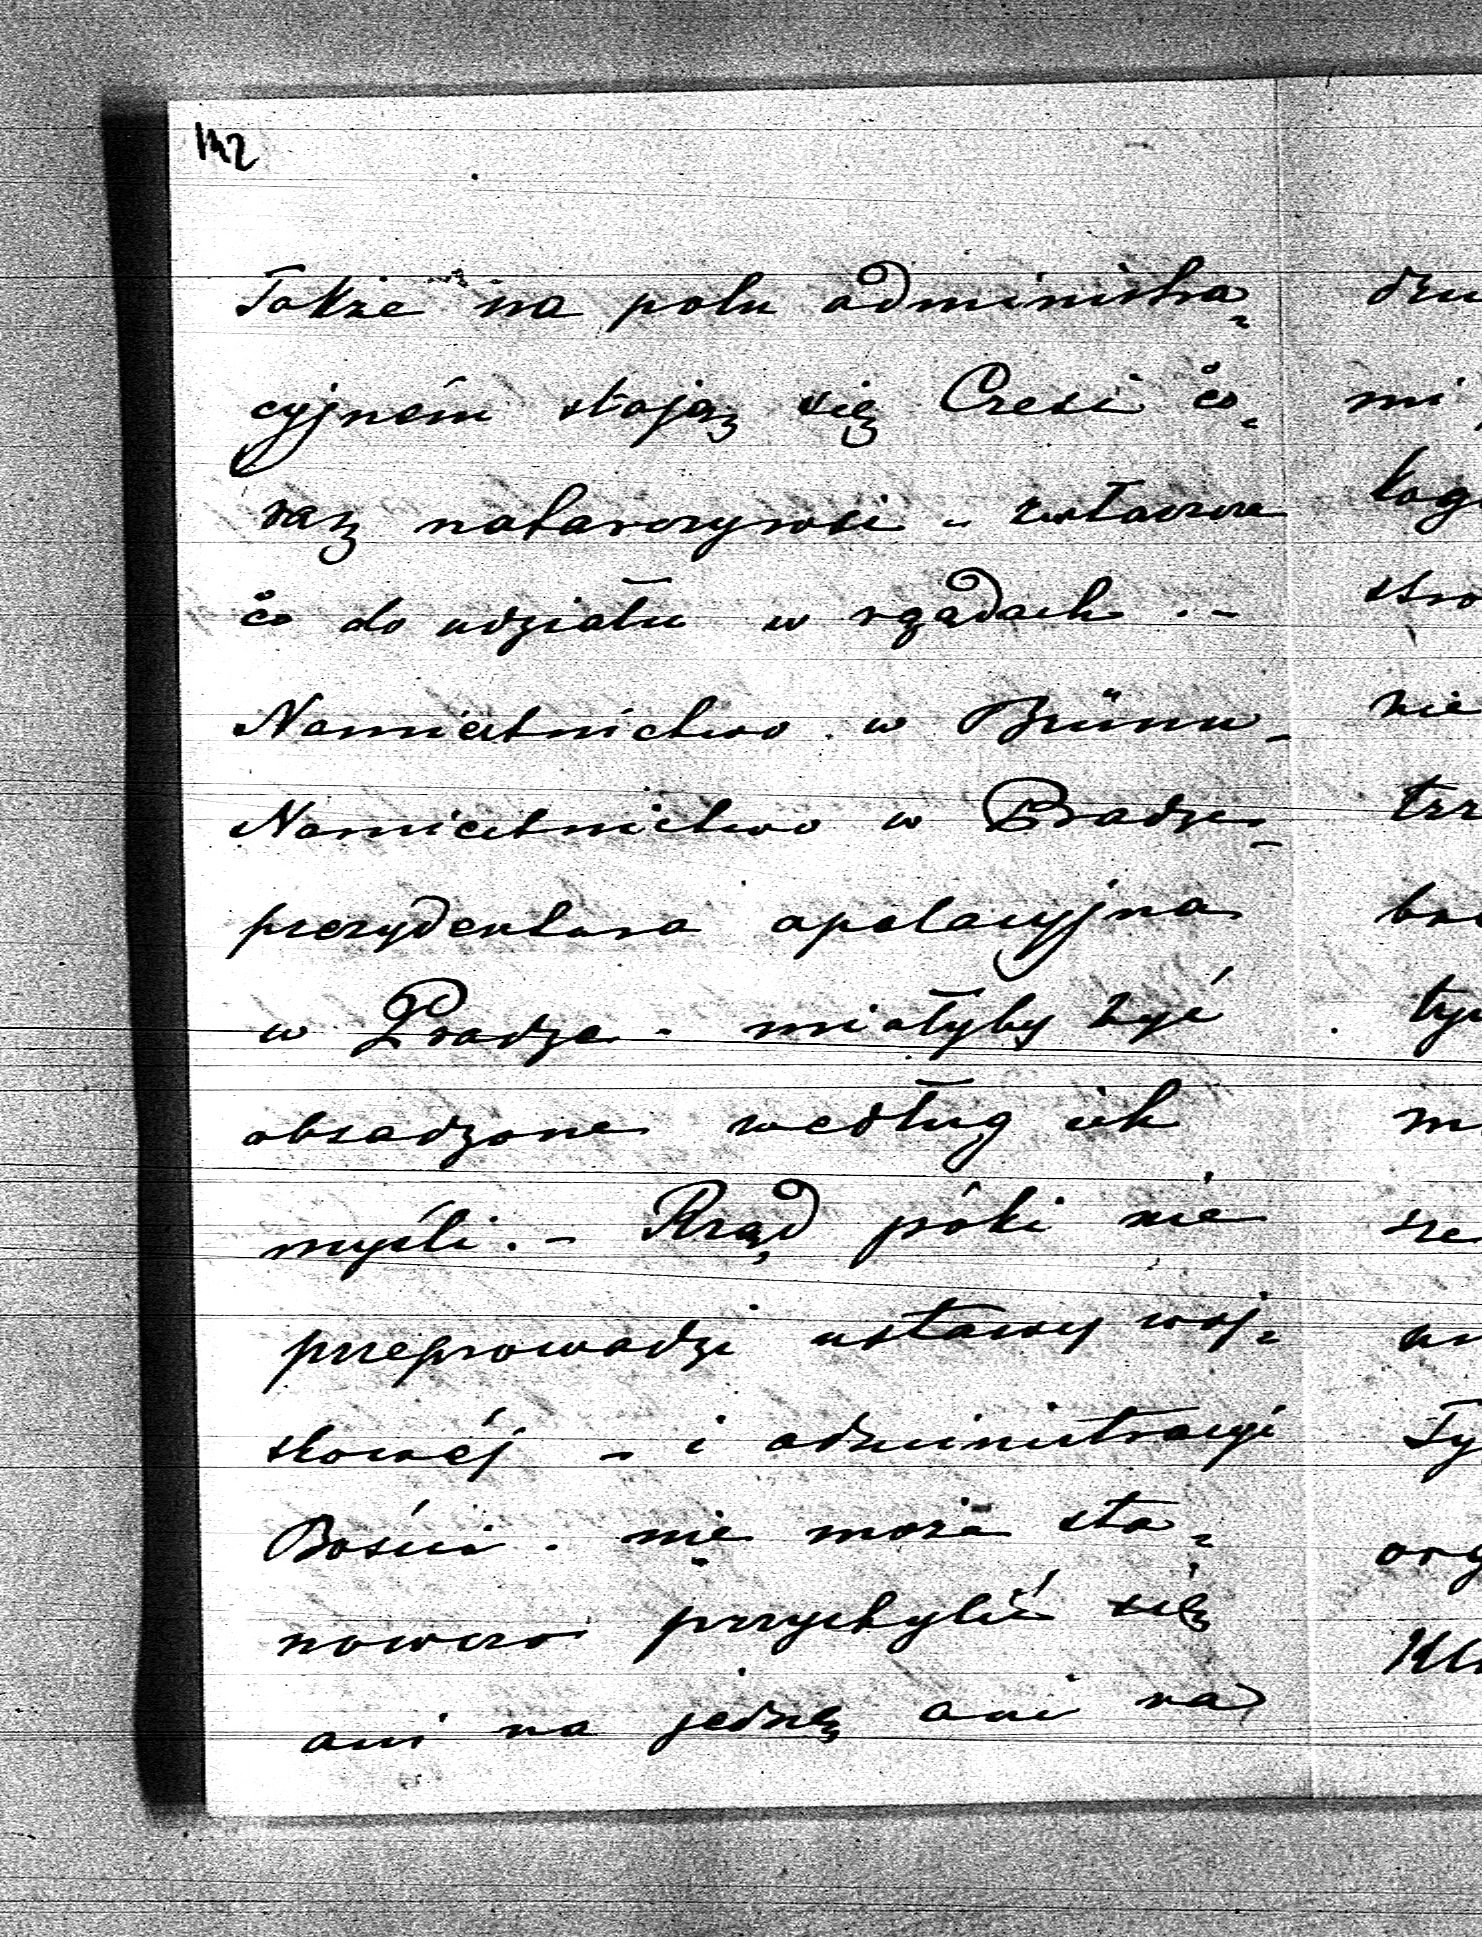 142
Także na polu administra-
cyjném stają się Czesi co-
raz natarczywsi - zwłaszcza
co do udziału w rządach. -
Namiestnictwo w Brünnu -
Namiestnictwo w Pradze -
prezydentura apelacyjna
w Pradze - miałyby być
obsadzone według ich
myśli. - Rząd póki nie
przeprowadzi ustawy woj-
skowéj - i administracyi
Bośnii. nie może sta-
nowczo przychylić się
ani na jednę ani na
mi
nie
org